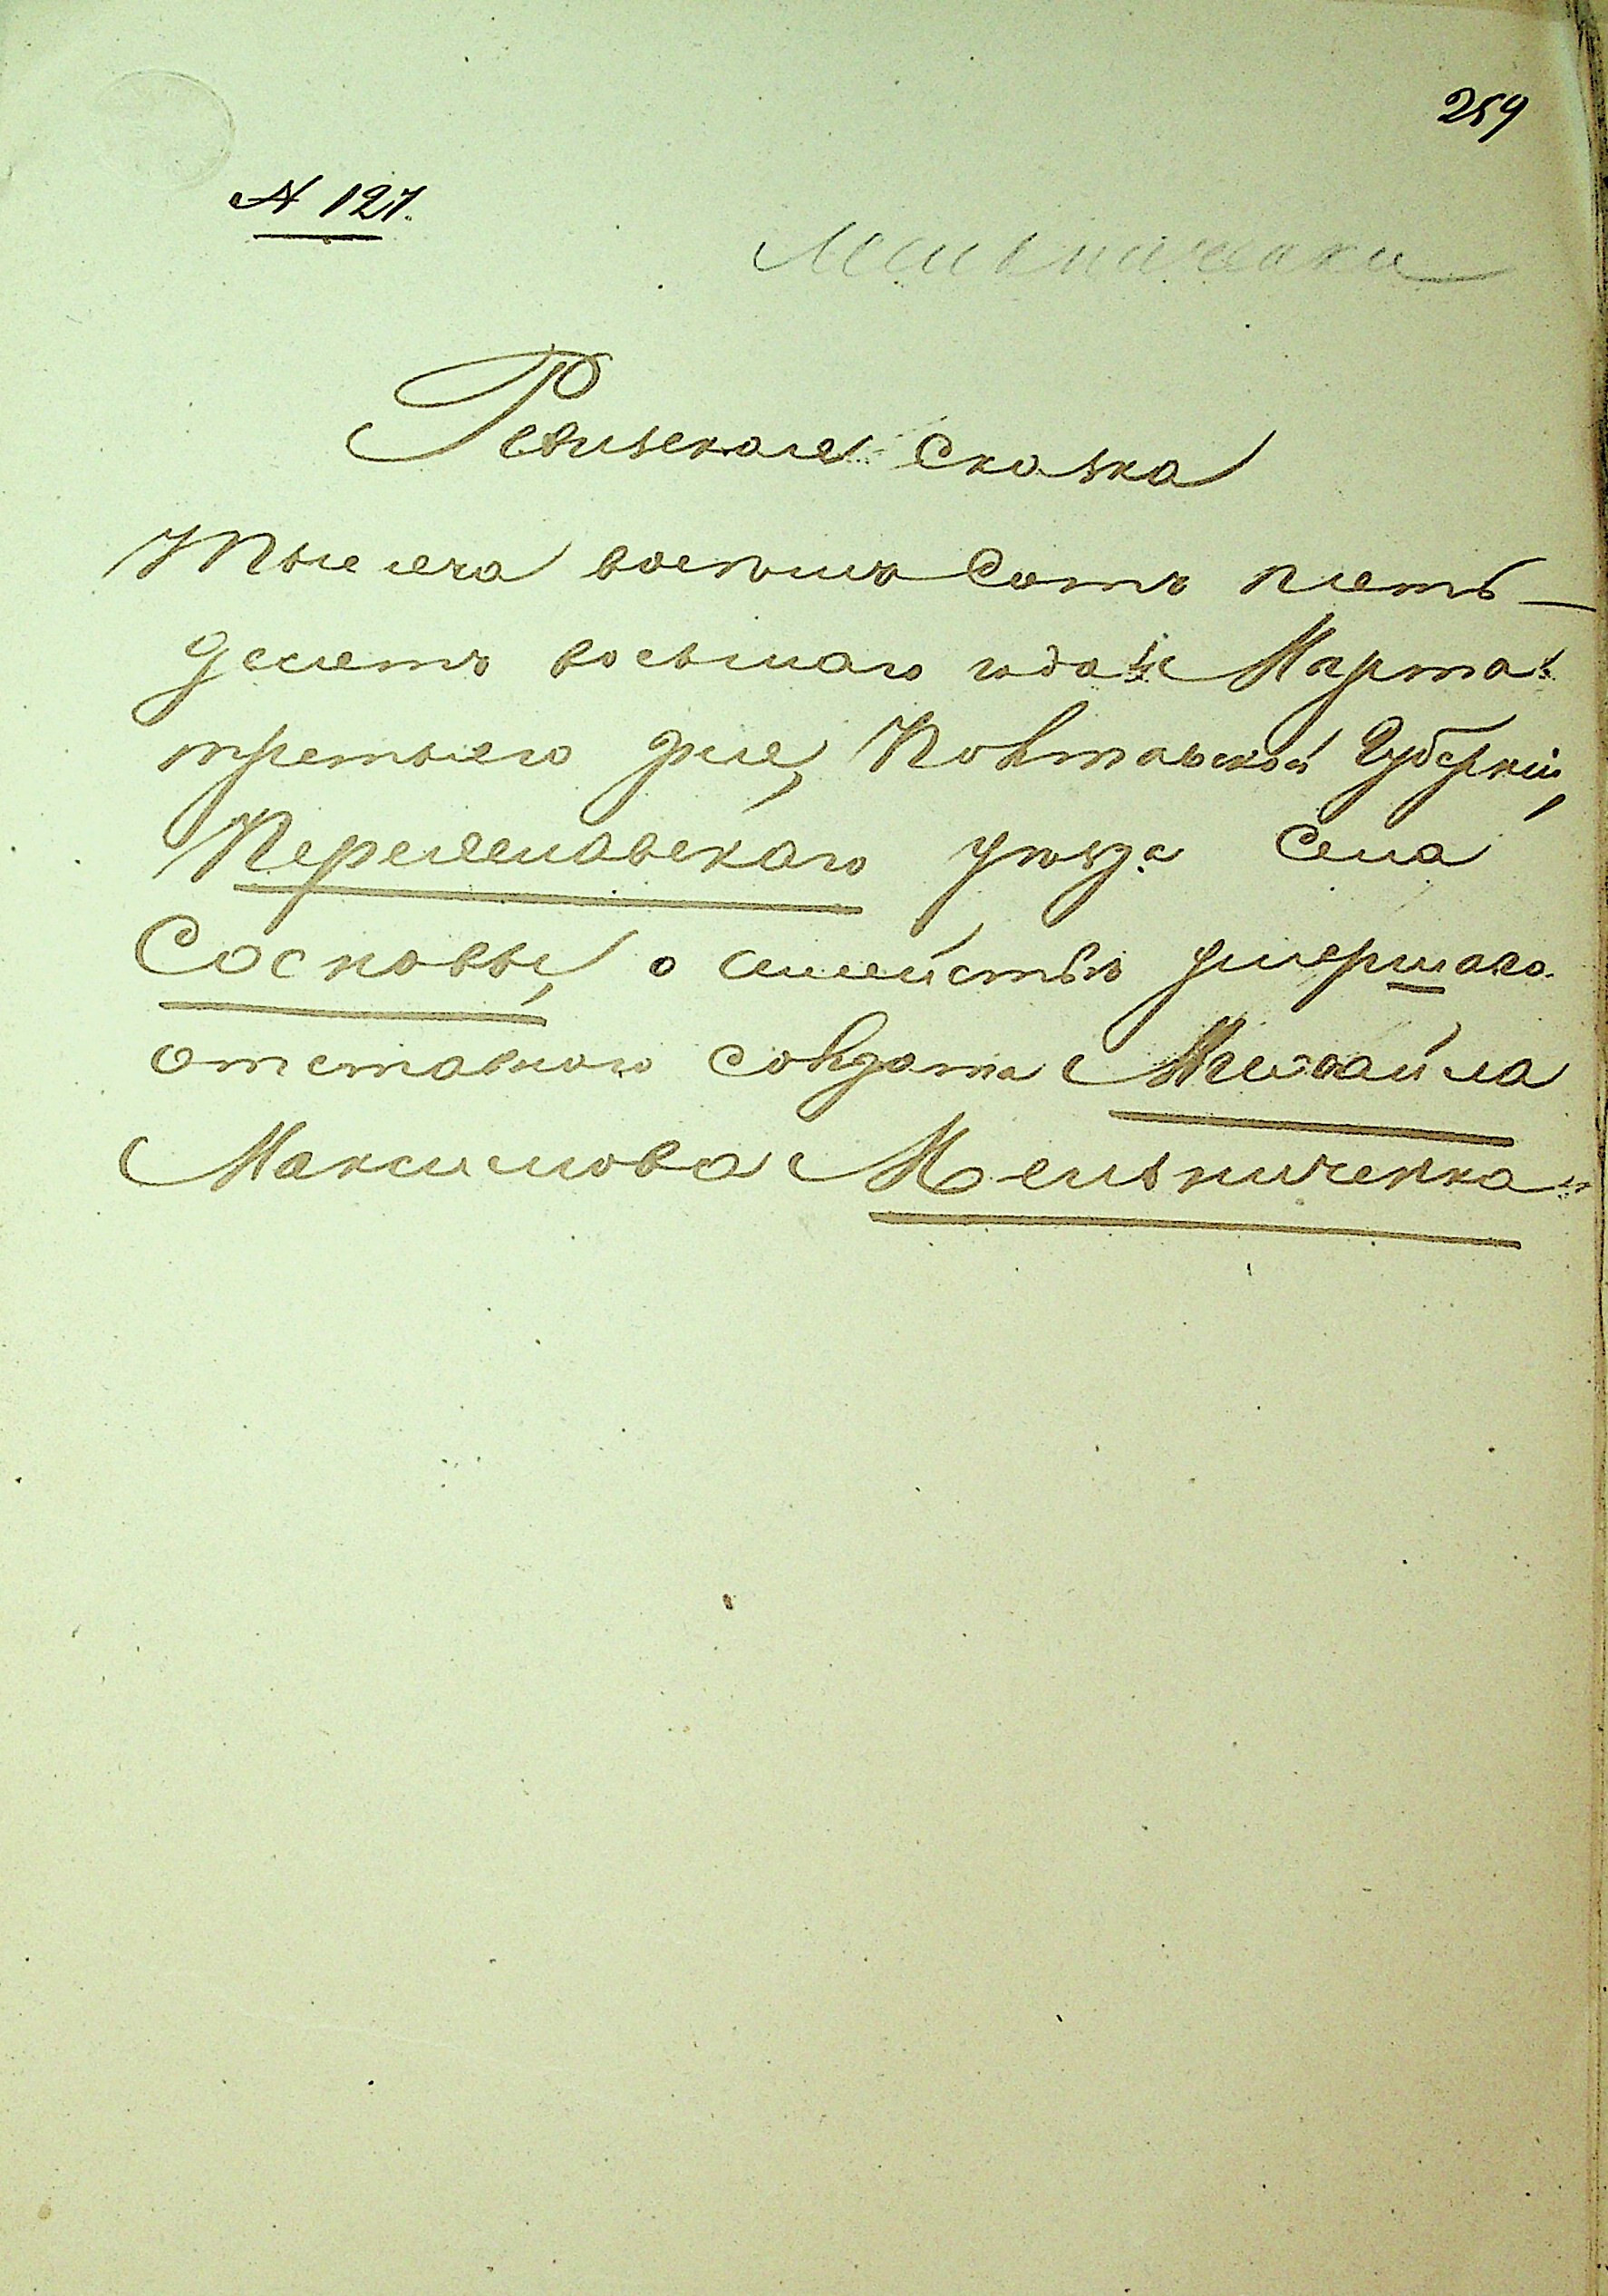 259
№ 127.
Мельниченки
Ревизская Сказка
Тысяча восемъ Сотъ пять-
десятъ восьмаго года Марта
третьяго дня, Полтавской Губерніи,
Переяславскаго уѣзда Села
Сосновы, о семействѣ умершаго
отставнаго солдата Михайла
Максимова Мельниченка